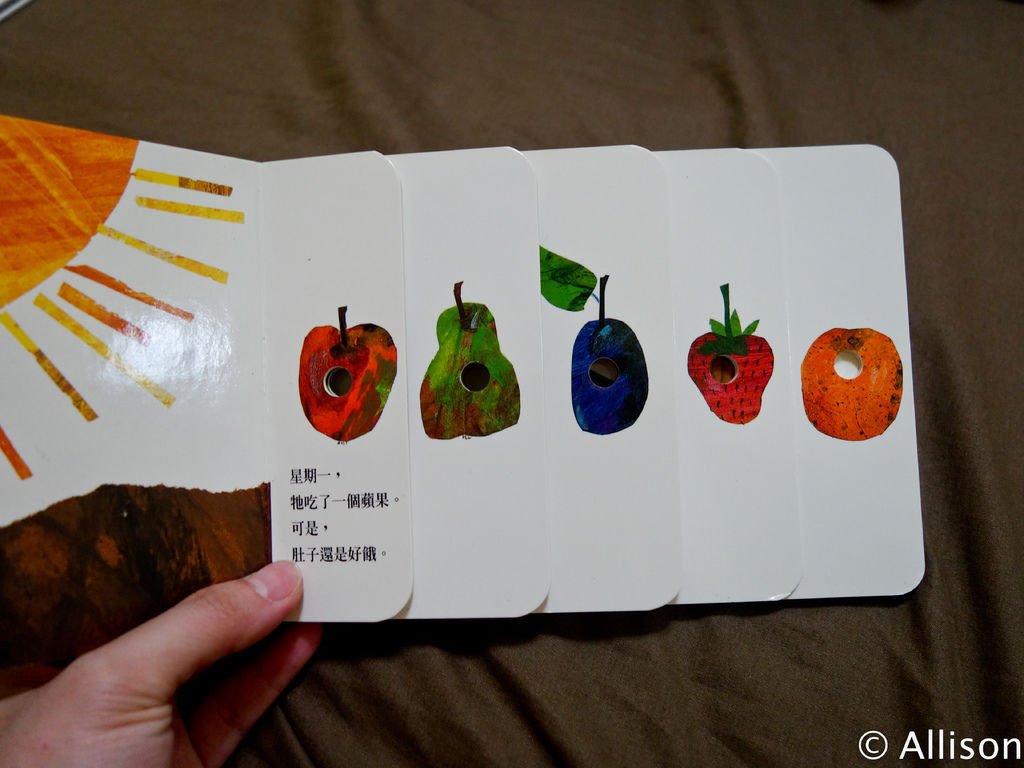 星期一，
牠吃了一個蘋果。
可是，
肚子還是好餓。
© Allison